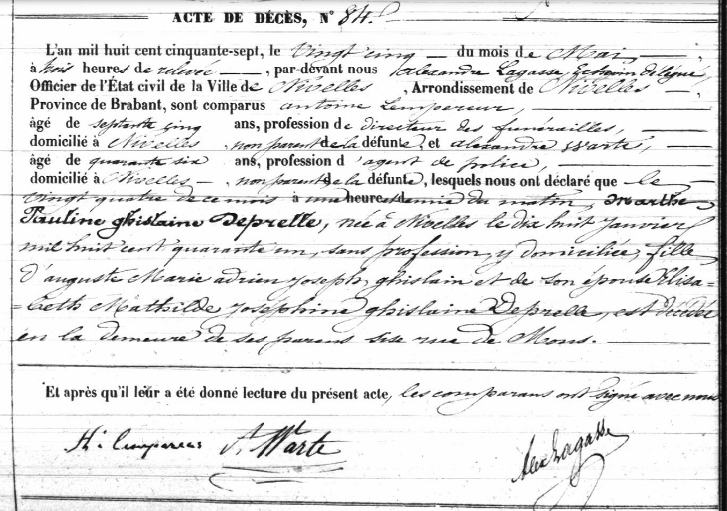 ACTE DE DÉCÈS, N° 84.
L'an mil huit cent cinquante-sept, le vingt cinq du mois de Mai
à trois heures de relevée, par-devant nous Alexandre Lagasse, Echevin délégué
Officier de l'État civil de la Ville de Nivelles, Arrondissement de Nivelles
Province de Brabant, sont comparus antoine Lempereur,
âgé de septante cinq ans, profession de directeur des funérailles,
domicilié à Nivelles, non parent de la défunte, et alexandre Warte,
âgé de quarante six ans, profession d'agent de police,
domicilié à Nivelles, non parent de la défunte, lesquels nous ont déclaré que le
vingt quatre de ce mois à une heure et demie du matin, Marthe
Pauline ghislaine Deprelle, née à Nivelles le dix huit Janvier
mil huit cent quarante un, sans profession, y domiciliée, fille
d'auguste Marie adrien joseph ghislain et de son épouse Elisa=
=beth Mathilde josephine ghislaine Deprelle, est décédée
en la demeure de ses parens sise rue de Mons.
Et après qu'il leur a été donné lecture du présent acte, les comparans ont signé avec nous
A. Warte
Alex Lagasse